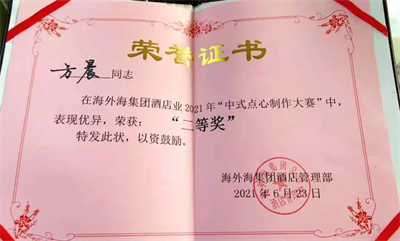 荣誉证书
方晨 同志
在海外海集团酒店业2021年“中式点心制作大赛”中,
表现优异,荣获: “二等奖”
特发此状,以资鼓励。
海外海集团酒店管理部
2021年6月23日